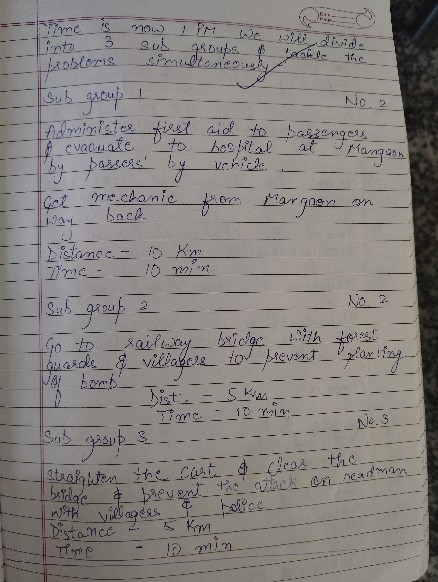 Time is now 1 PM We will divide
into 3 sub groups & tackle the
problems simultaneously.
Sub group 1 No. 2
Administer first aid to passengers
& evacuate to hospital at Mangaon
by passers' by vehicle.
Get mechanic from Margaon on
way back
Distance - 10 Km
Time - 10 min
Sub group 2 No. 2
Go to railway bridge with forest
guards & villagers to prevent planting
of bomb
Dist. - 5 Km
Time - 10 min
Sub group 3 No. 3
Straighten the cart & clear the
bridge & prevent the attack on readman
with villagers & police
Distance - 5 Km
Time - 10 min